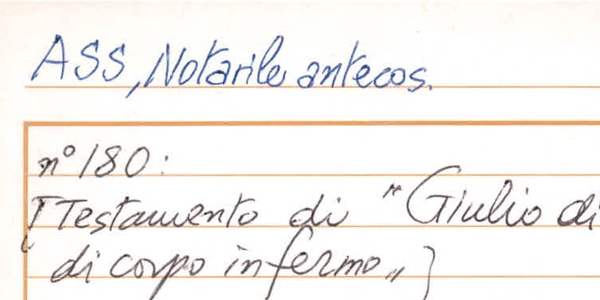 ASS, Notarile antecos.
n° 180:
[Testamento di "Giulio di
di corpo infermo„]